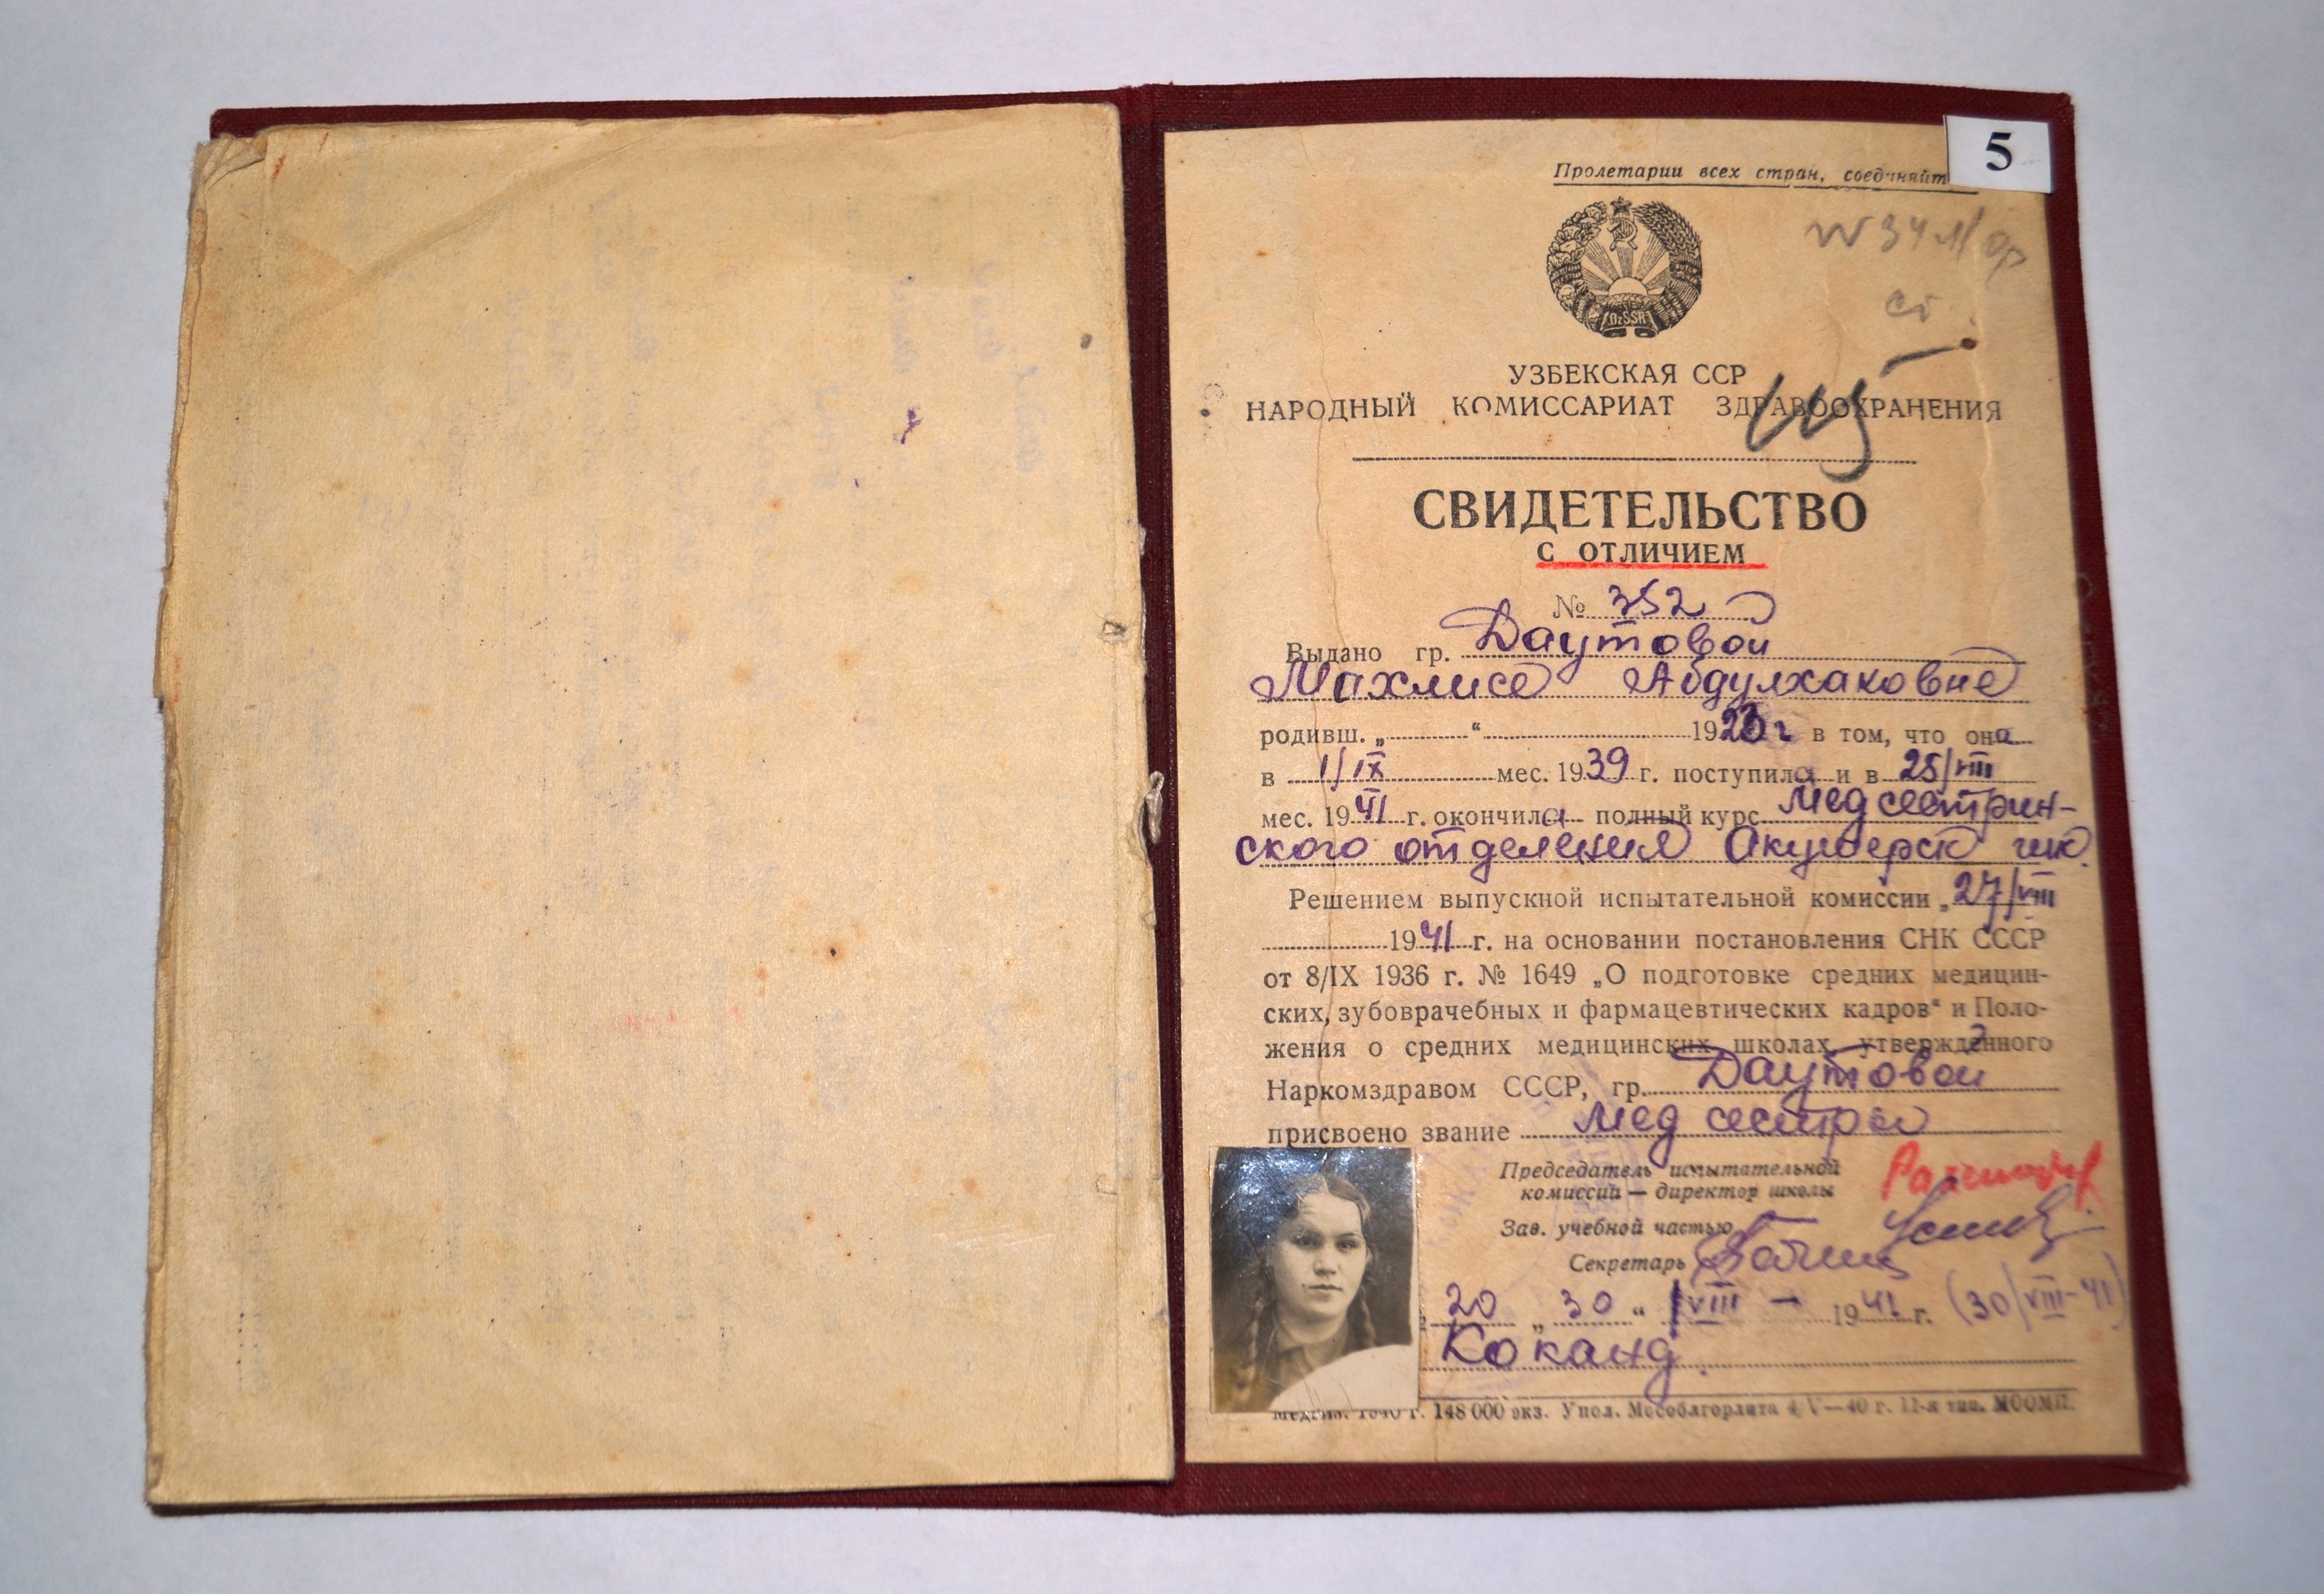 5
Пролетарии всех стран, соединяйт
OzSSR
УЗБЕКСКАЯ ССР
НАРОДНЫЙ КОМИССАРИАТ ЗДРАВООХРАНЕНИЯ
СВИДЕТЕЛЬСТВО
С ОТЛИЧИЕМ
№ 352
Выдано гр. Даутовой
Махлисе Абдулхаковне
родивш. „ “ 1923 г в том, что она
в 1/IX мес. 1939 г. поступила и в 25/VIII
мес. 1941 г. окончила полный курс медсестрин-
ского отделения Акушерск шк.
Решением выпускной испытательной комиссии „27/VIII
1941 г. на основании постановления СНК СССР
от 8/IX 1936 г. № 1649 „О подготовке средних медицин-
ских, зубоврачебных и фармацевтических кадров“ и Поло-
жения о средних медицинских школах, утвержденного
Наркомздравом СССР, гр. Даутовой
присвоено звание мед сестры
Председатель испытательной
комиссии — директор школы
Зав. учебной частью
Секретарь
20 „ 30 “ VIII - 1941 г. (30/VIII-41)
Коканд.
Медгиз. 1940 г. 148 000 экз. Упол. Мособлгорлита 4/V—40 г. 11-я тип. МООМП.